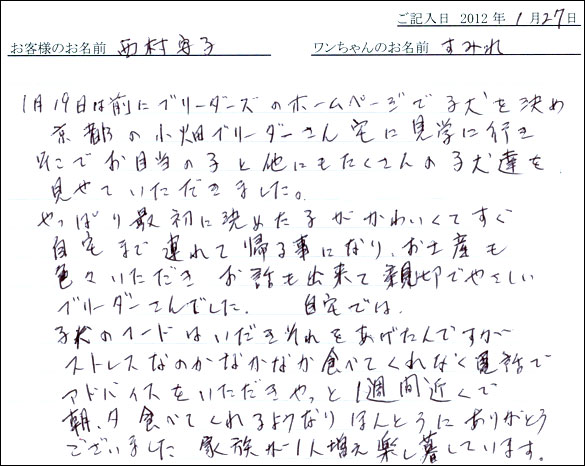 ご記入日 2012年 1月27日
お客様のお名前 西村 ワンちゃんのお名前 すみれ
1月19日は前にブリーダーズのホームページで子犬を決め
京都の小畑ブリーダーさん宅に見学に行き
そこでお目当の子と他にもたくさんの子犬達を
見せていただきました。
やっぱり最初に決めた子がかわいくてすぐ
自宅まで連れて帰る事になり、お土産も
色々いただき お話も出来て親切でやさしい
ブリーダーさんでした。 自宅では、
子犬のフードはいだきそれをあげたんですが
ストレスなのかなかなか食べてくれなく電話で
アドバイスをいただきやっと1週間近くで
朝、夕食べてくれるようなりほんとうにありがとう
ございました 家族が1人増え楽し暮しています。